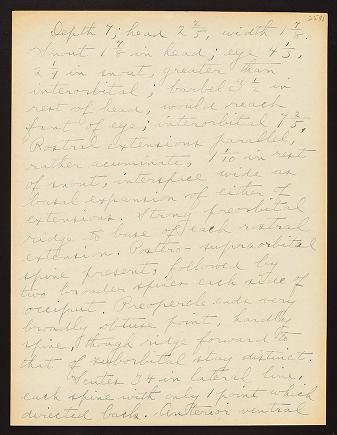 2581
Depth 7; head 2 2/5, width 1 7/8.
Snout 1 7/8 in head; eye 4 1/3,
2 1/4 in snout, greater than
interorbital; barbel 3 1/2 in
rest of head, would reach
front of eye; interorbital 7 2/5.
Rostral extensions parallel,
rather acuminate, 1 1/10 in rest
of snout, interspace wide as
basal expansion of either of
extensions. Strong preorbital
ridge to base of each rostral
extension. Postero-supraorbital
spine present, followed by
two broader spines each side of
occiput. Preopercle ends very
broadly obtuse point, hardly
spine, though ridge forward to
that of suborbital stay distinct.
Scutes 34 in lateral line,
each spine with only 1 point which
directed back. Anterior ventral